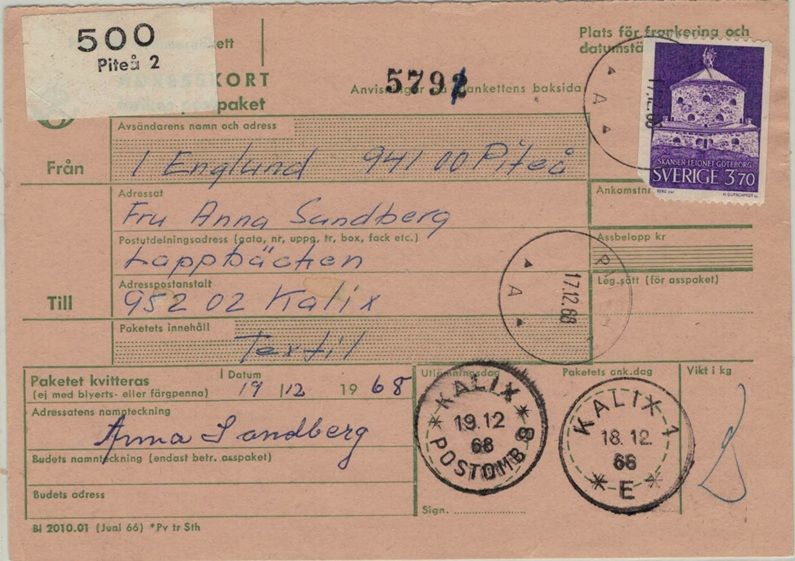 500
Piteå 2
ett
Plats för frankering och
datumstä
KORT
paket
5792
Anvis
ankettens baksida
17.12.68
A
SKANSEN LEJONET GÖTEBORG
SVERIGE 370
Avsändarens namn och adress
Från
I Englund 941 00 Piteå
Adressat
Fru Anna Sundberg
Ankomstnr
Postutdelningsadress (gata, nr, uppg, tr, box, fack etc.)
Lappbäcken
Assbelopp kr
Adresspostanstalt
Leg.sätt (för asspaket)
Till
952 02 Kalix
17.12.68
A
Paketets innehåll
Textil
Paketet kvitteras
(ej med blyerts- eller färgpenna)
Datum
19 /12 1968
Utlämningsdag
Paketets ank.dag
Vikt i kg
Adressatens namnteckning
Anna Sandberg
KALIX
19.12
68
POSTOMB 8
KALIX 1
18.12.
68
E
Budets namnteckning (endast betr. asspaket)
Budets adress
Sign.
Bl 2010.01 (Juni 66) *Pv tr Sth